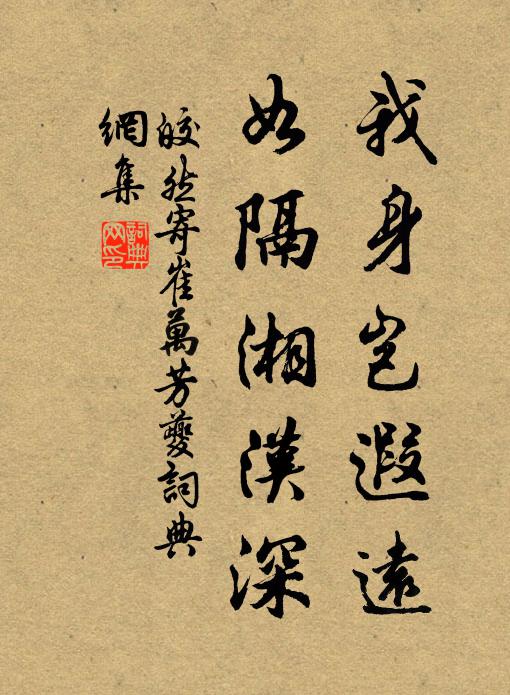 我身岂遐遠
如隔湘漢深
皎然寄崔萬芳夔詞典
網集
詞典
网印